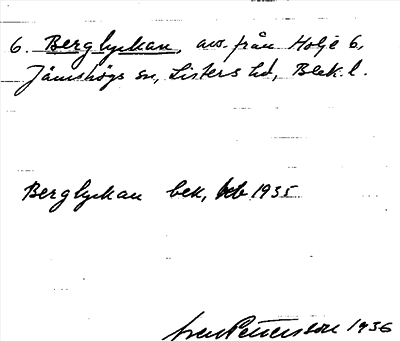 6. Berglyckan, avs. från Holje 6,
Jämshögs sn, Listers hd, Blek. l.
Berglyckan bek, beb 1935
Sven Pettersson 1936